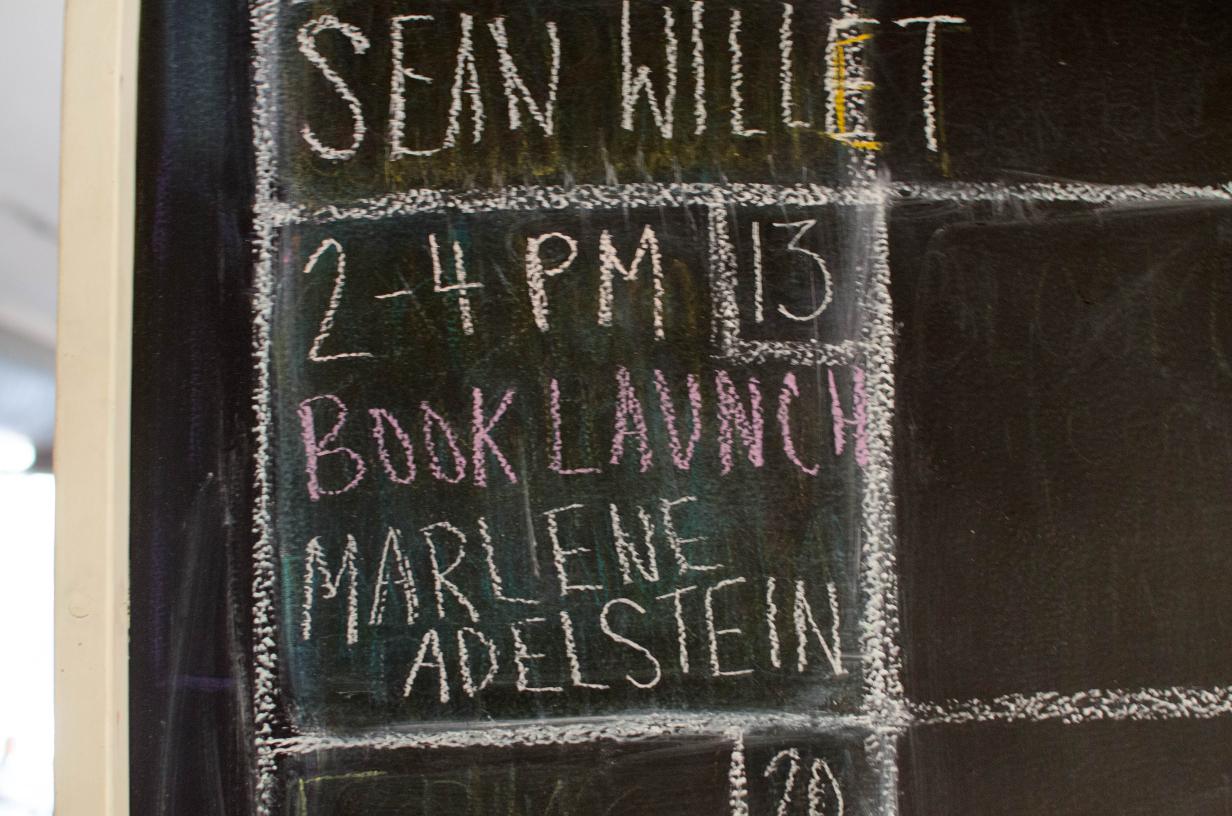 SEAN WILLET
2-4 PM 13
BOOK LAUNCH
MARLENE
ADELSTEIN
20